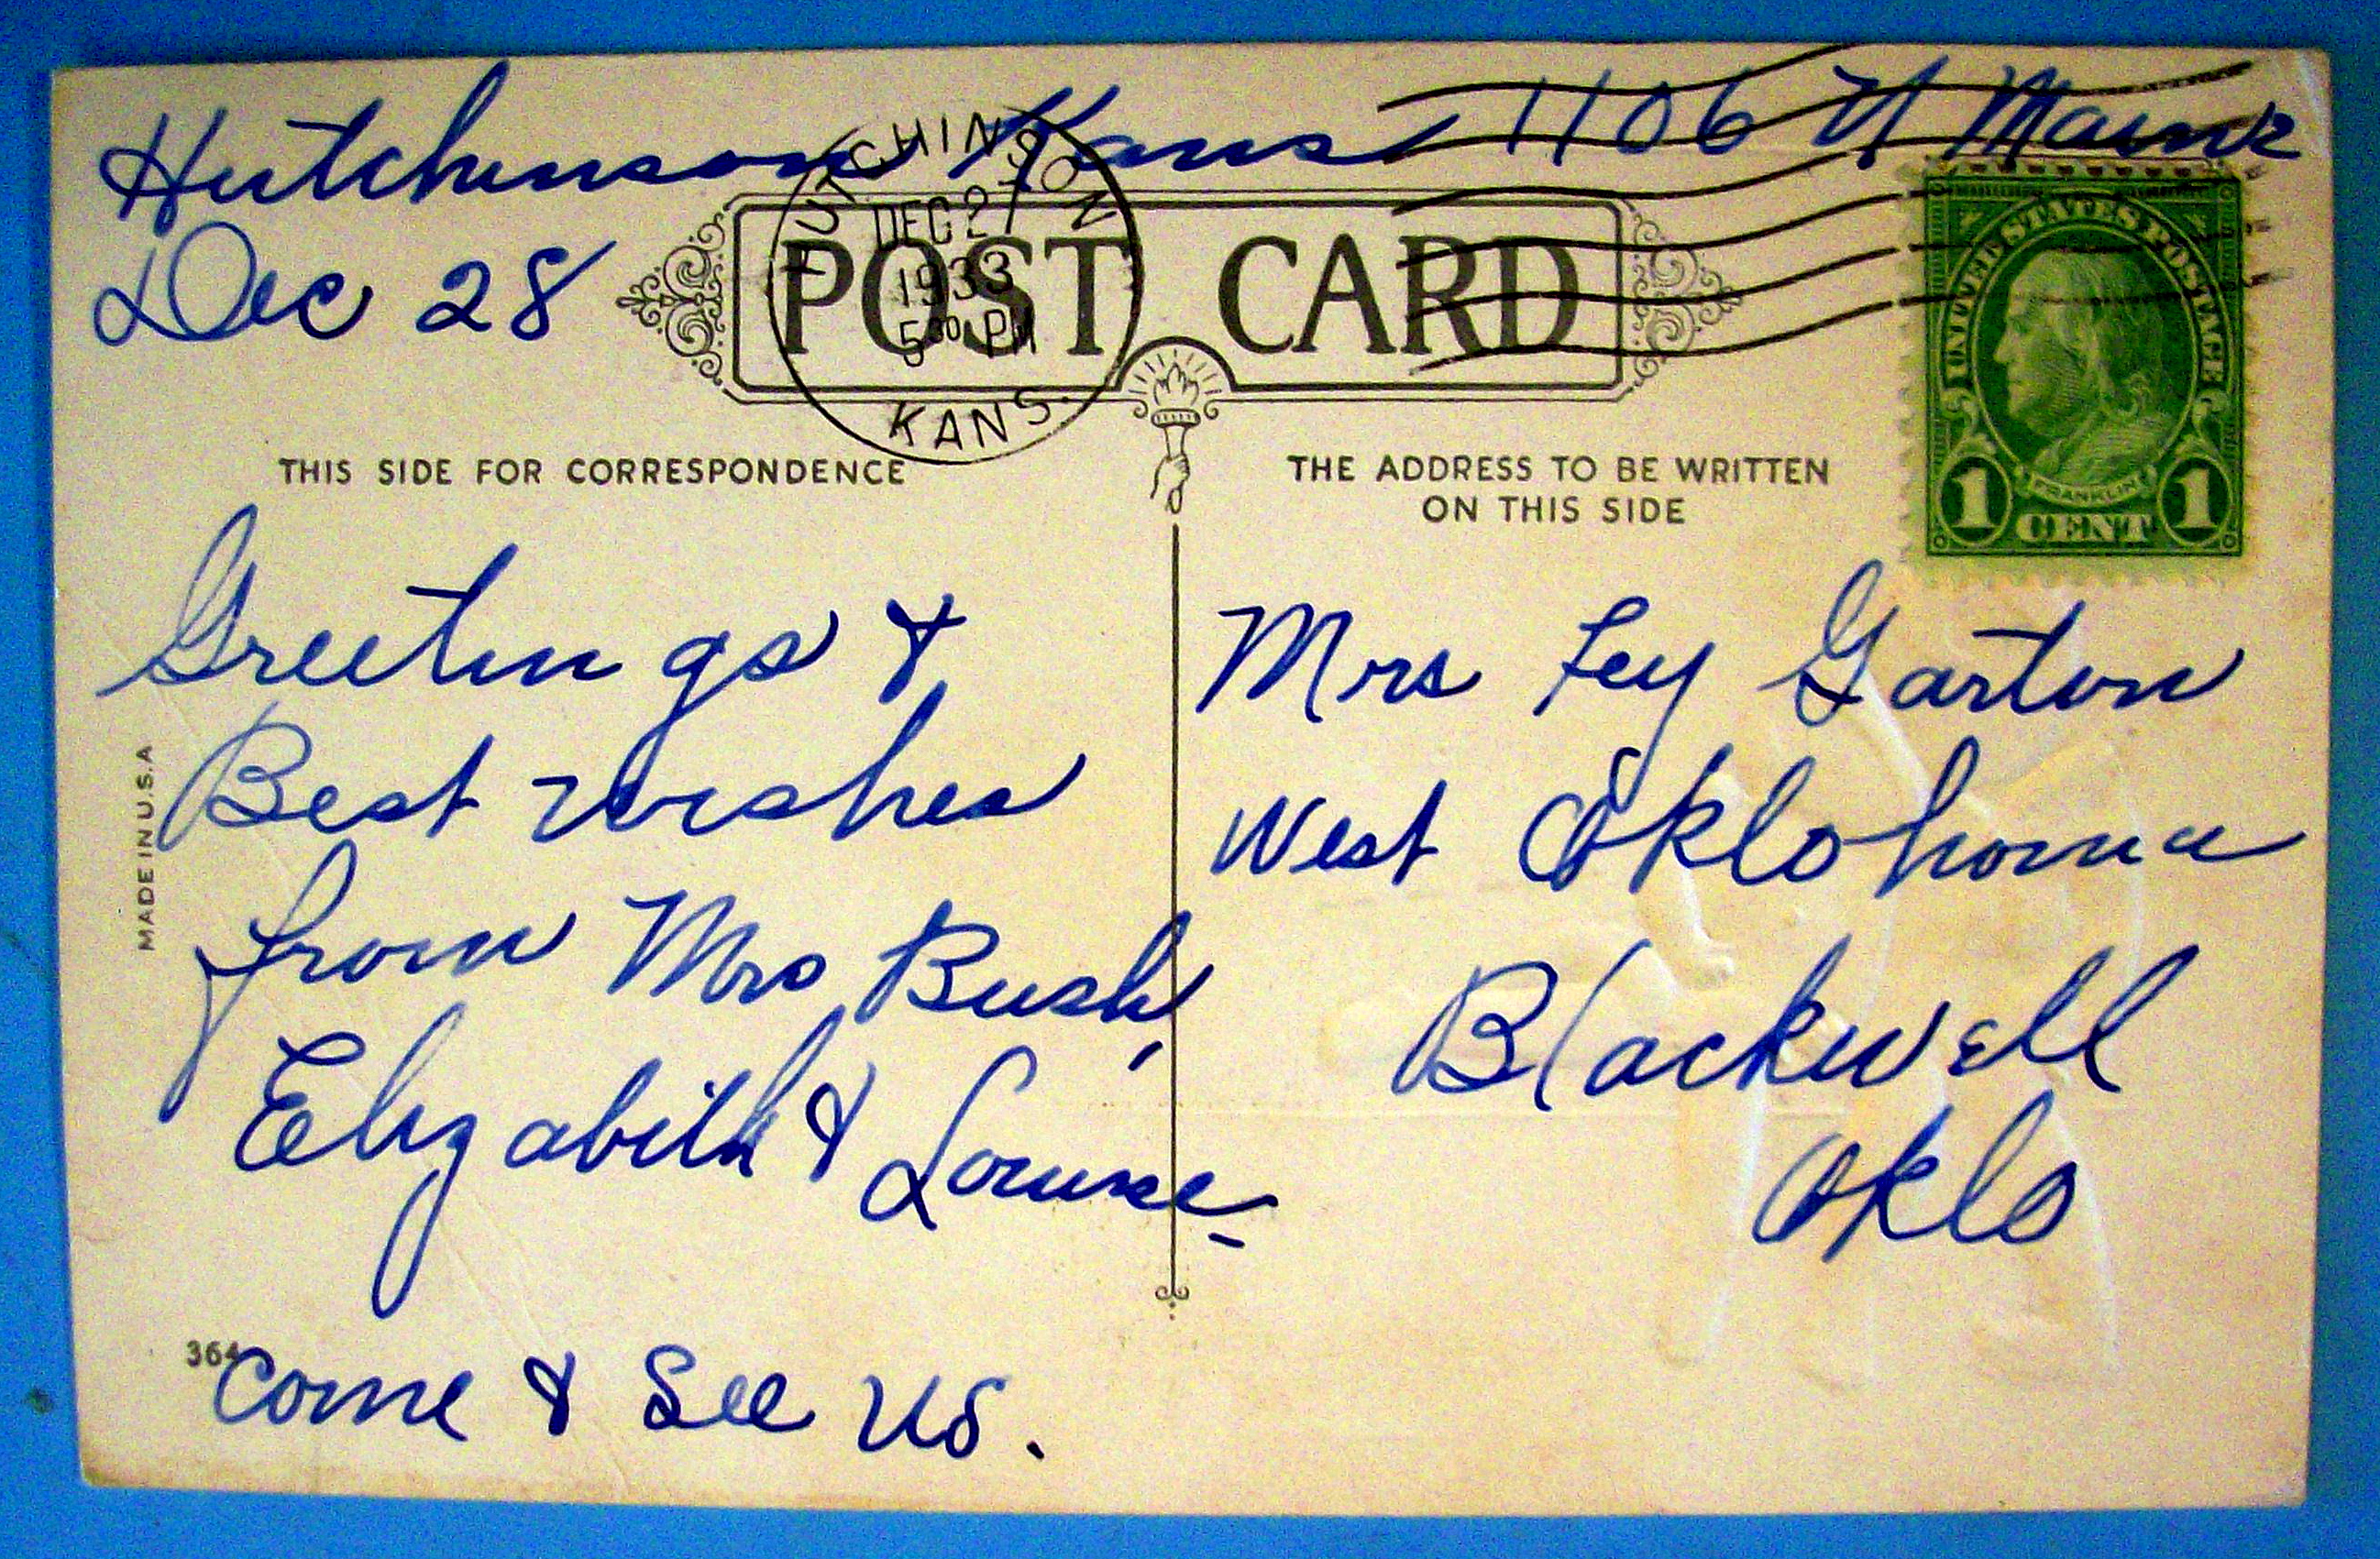 Hutchinson Kans 1106 N Maine
Dec 28
HUTCHINSON
DEC 27
1933
5 30 PM
KANS.
POST CARD
UNITED STATES POSTAGE
FRANKLIN
1 CENT 1
THIS SIDE FOR CORRESPONDENCE
THE ADDRESS TO BE WRITTEN
ON THIS SIDE
Greetings &
Best wishes
from Mrs Bush,
Elizabeth & Louise
Come & See Us.
Mrs Fey Garton
West Oklohoma
Blackwell
Oklo
MADE IN U.S.A
364